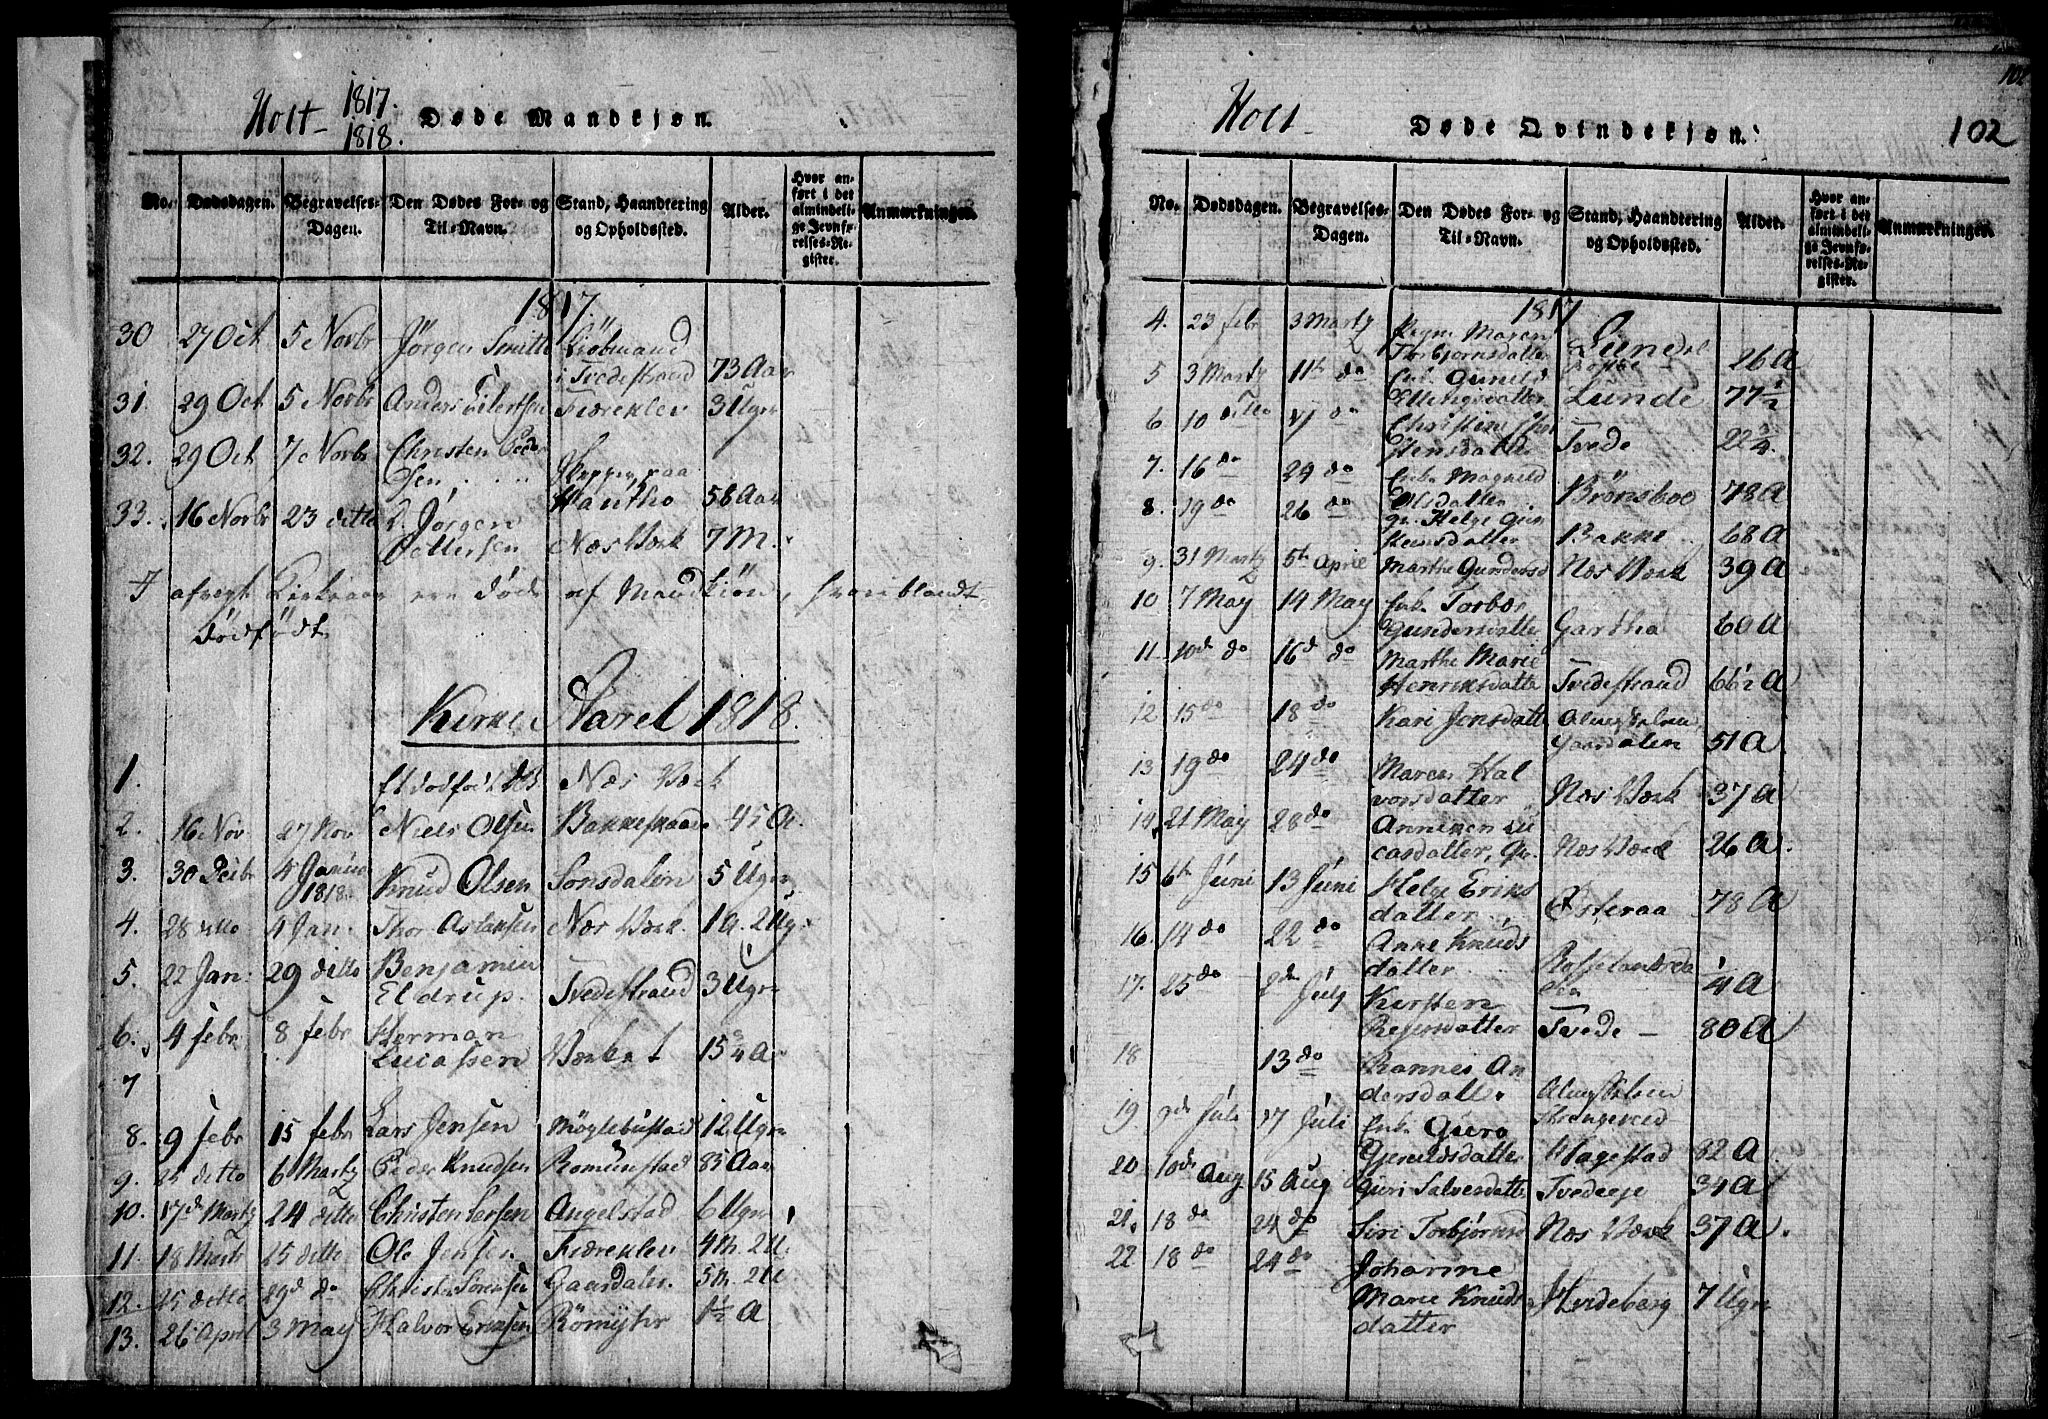 Holt 1817.
1818.
Døde Mandkjøn.
No. Dødsdagen. Begravelses-Dagen. Den Dødes For- og Til-Navn. Stand, Haandtering og Opholdssted. Alder. Hvor anført i det almindelige Jevnførelses-Register. Anmærkninger.
1817.
30 27 Oct 5 Novbr Jørgen Smitt
i Tvedestrand 73 Aar
31. 29 Oct 5 Novbr Anders Eilertsen Fiæreklev 3 Ugr
32. 29 Oct 7 Novbr Christen Peder
sen 56 Aar
33. 16 Novbr 23 ditto Jørgen
Pettersen Næs Værk 7 M.
ere Døde af Mandkiøn, hvoriblandt
Dødfødt.
Kirke Aaret 1818.
1. Et dødfødt Næs Værk
2. 16 Nov 27 Nov Niels Olsen 45 A.
3. 30 Decbr 4 Janua
1818. Knud Olsen Sonsdalen 5 Ugr
4. 28 ditto 4 Jan. Thor Aslaksen Næs Værk. 1 a. 2 Ug.
5. 22 Jan: 29 ditto Benjamin
Eldrup. Tvedestrand 3 Ugr
6. 4 febr 8 febr Herman
Lucassen 15 3/4 A
7
8. 9 febr 15 febr Lars Jensen Møglebustad 12 Ugr
9. 25 ditto 6 Martz Peder Knudsen Romundstad 85 Aar
10. 17d Martz 24 ditto Christen Angelstad 6 Ugr
11. 18 Marti 25 ditto Ole Jensen Fiæreklev 4 M. 2 U.
12. 25 ditto 29d do Gaasdalen 5 M. 2 U
13. 26 April 3 May Halvor 1 1/2 A
Holt
Døde Qvindekjøn.
102
No. Dødsdagen. Begravelses-Dagen. Den Dødes For- og Til-Navn. Stand, Haandtering og Opholdssted. Alder. Hvor anført i det almindelige Jevnførelses-Register. Anmærkninger.
1817
4. 23 febr 3 Martz Maren
Torbjornsdatter Lunde 26 A
5 3 Martz 11th do Enk. Gunild
Ellingsdatter Lunde 77 1/2
6 10 ditto do Christin
Stensdatter Tvede 22 3/4
7. 16 do 24 do Enk. Magnild
Olsdatter 78 A
8. 19 do 26 do Helge Gun
stensdatter Bakke 68 A
9. 31 Martz 5th April Marthe Gundersd Næs Værk 39 A
10 7 May 14 May Enk. Torbor
Gundersdatter Gartha 60 A
11 10d do 16d do Marthe Marie
Henriksdatter Tvedestrand 66 1/2 A
12 15 do 18 do Kari Jensdatter
Gaasdalen 51 A
13 19 do 24 do Maren Hal
vorsdatter Næs Værk 37 A
14. 21 May 28 do Anniken Lu
casdatter, Næs Værk 26 A.
15 6th Juni 13 Juni Helge Eriks
datter Østeraa 78 A
16. 14 do 22 do Anne Knuds
datter 1/4 A
17. 25 do 2d July Kirsten
Reiersdatter Tvede 80 A
18 13 do Rannei An
dersdatt.
19. 9d Juli 17 Juli Enk. Guro
Gjeruldsdatter Hagestad 82 A
20 10d Aug 15 Aug Guri Salvesdatter Tvedeeje 34 A
21. 18 do 24 do Siri Torbjørnsd Næs Værk 37 A.
22 18 do 24 do Johanne
Marie Knuds
datter Hvideberg 7 Ugr